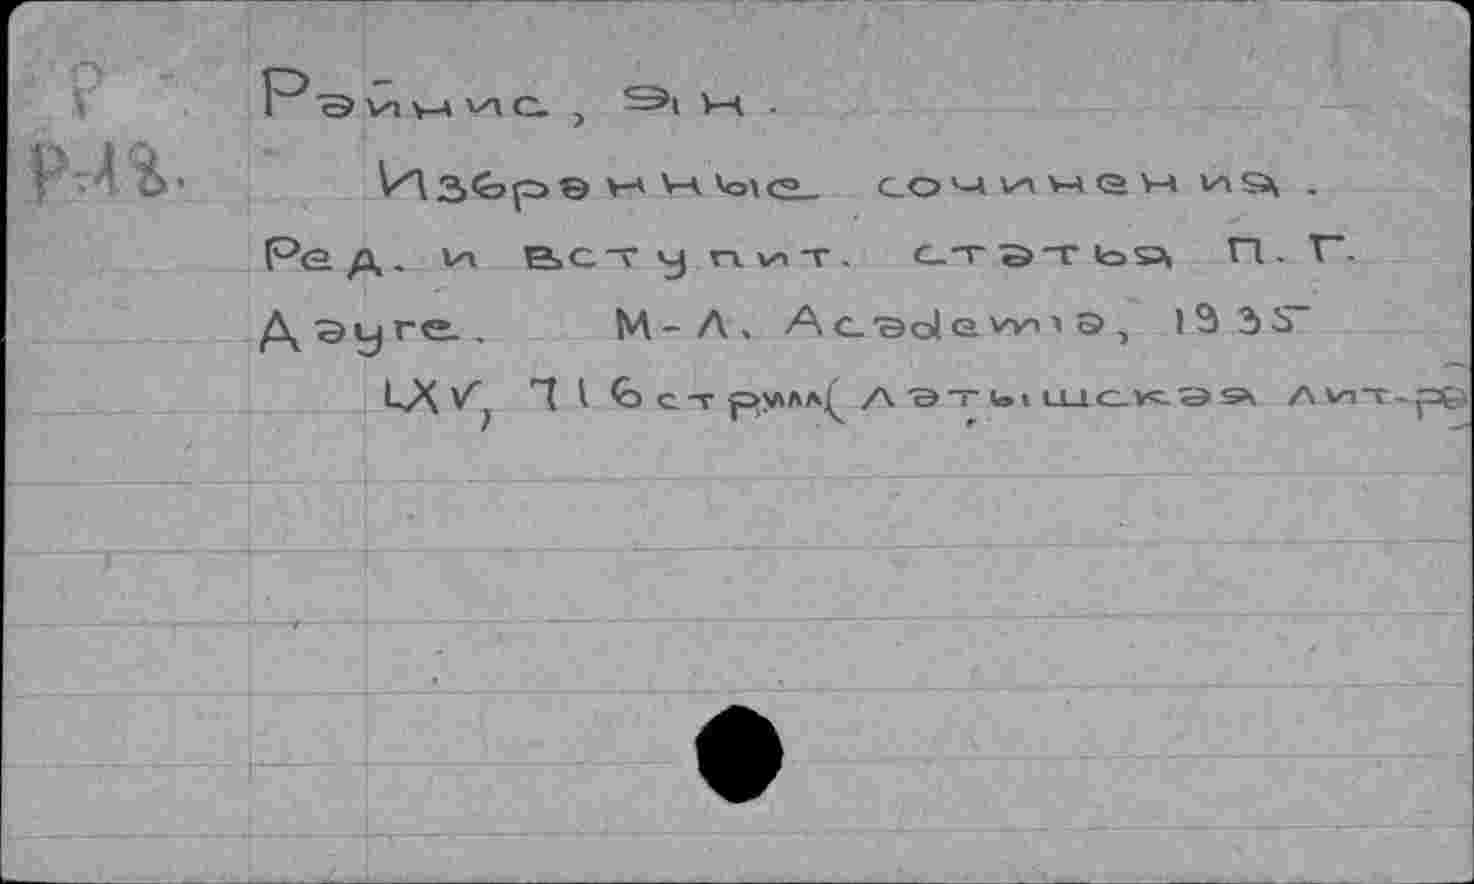 Р
Р-18.
Райнис, Ян.
Избранные сочинения.
Ред. и вступит. статья П. Г.
Дауге. М-Л, Academia, 1935
LXV, 716 стр. (Латышская лит-ра